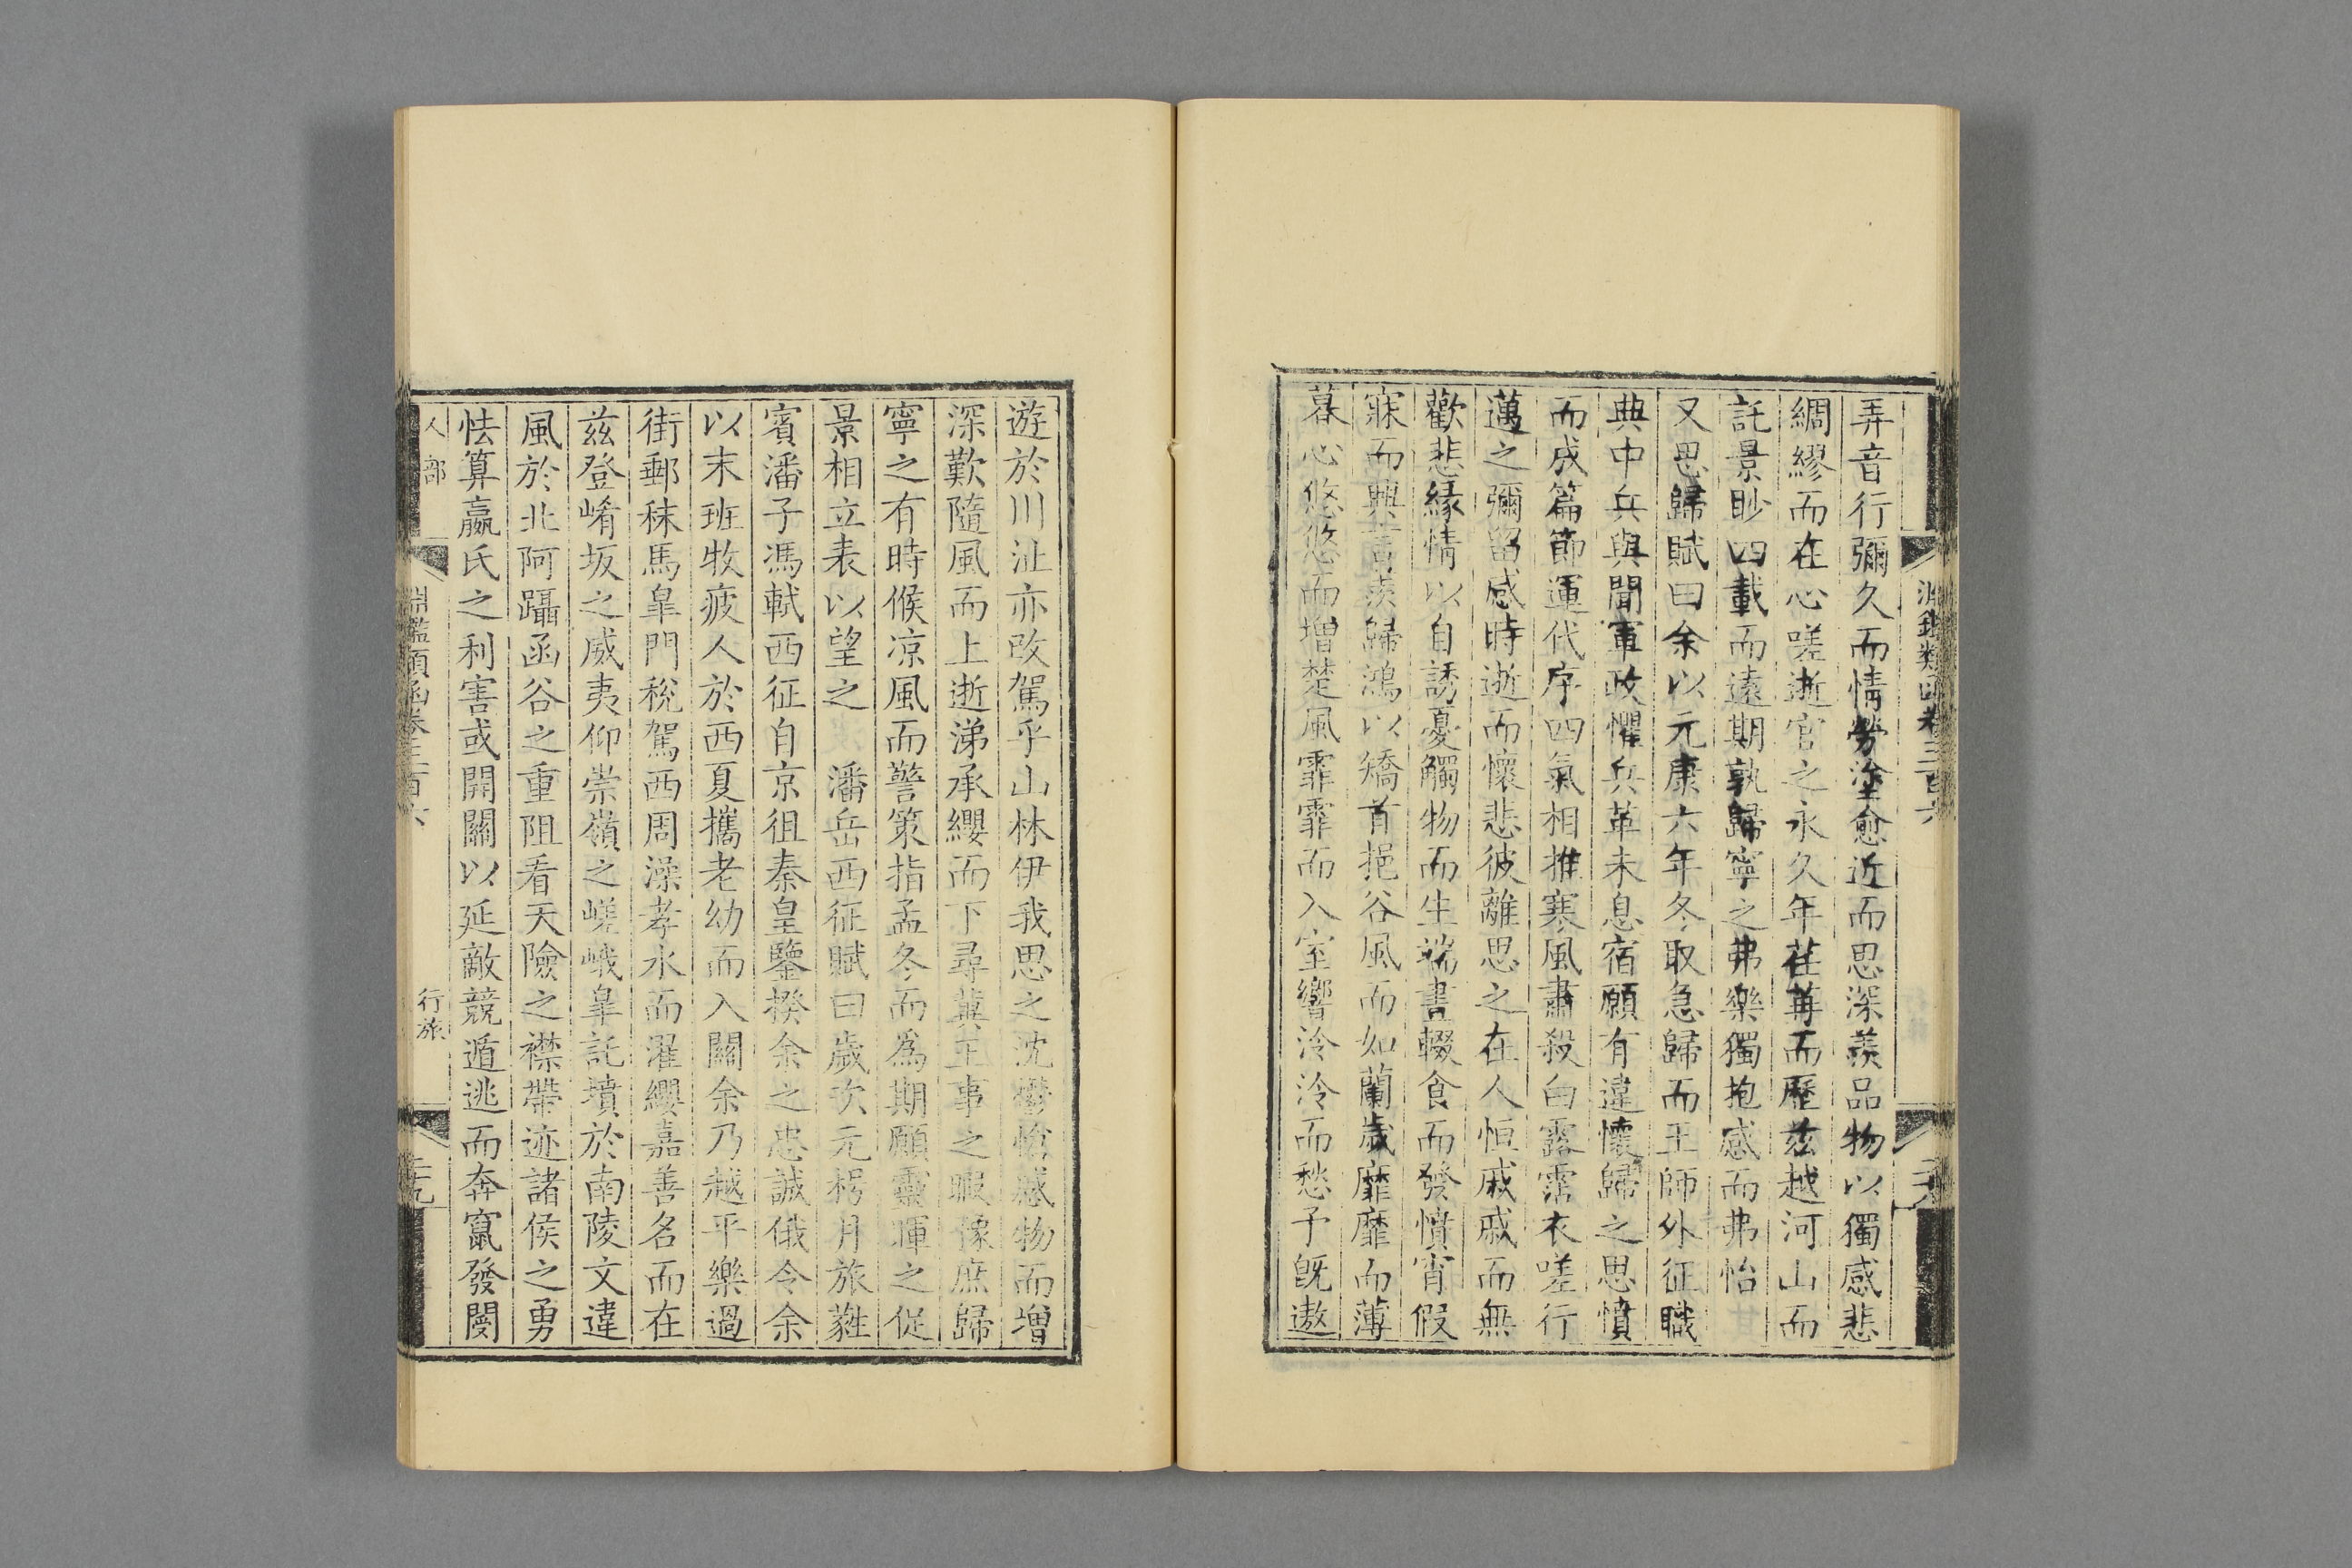 淵鑑類函卷三百六
弄音行彌久而情勞塗愈近而思深羨品物以獨感悲
綢繆而在心嗟逝官之永久年荏苒而歷茲越河山而
託景眇四載而遠期孰歸寧之弗樂獨抱感而弗怡
又思歸賦曰余以元康六年冬取急歸而王師外征職
典中兵與聞軍政懼兵革未息宿願有違懷歸之思憤
而成篇節運代序四氣相推寒風肅殺白露霑衣嗟行
邁之彌留感時逝而懷悲彼離思之在人恒戚戚而無
歡悲緣情以自誘憂觸物而生端晝輟食而發憤宵假
寐而興言羨歸鴻以矯首挹谷風而如蘭歲靡靡而薄
暮心悠悠而增楚風霏霏而入室響泠泠而愁予旣遨
遊於川沚亦改駕乎山林伊我思之沈鬱愴感物而增
深歎隨風而上逝涕承纓而下尋冀王事之暇豫庶歸
寧之有時候凉風而警策指孟冬而爲期願靈暉之促
景相立表以望之　潘岳西征賦曰歲次元枵月旅蕤
賓潘子馮軾西征自京徂秦皇鑒揆余之忠誠俄令余
以末班牧疲人於西夏攜老幼而入關余乃越平樂過
街郵秣馬皐門稅駕西周澡孝水而濯纓嘉善名而在
茲登崤坂之威夷仰崇嶺之嵯峨皐託墳於南陵文違
風於北阿躡函谷之重阻看天險之襟帶迹諸侯之勇
怯算嬴氏之利害或開關以延敵競遁逃而奔竄發閿
人部　淵鑑類函卷三百六　行旅